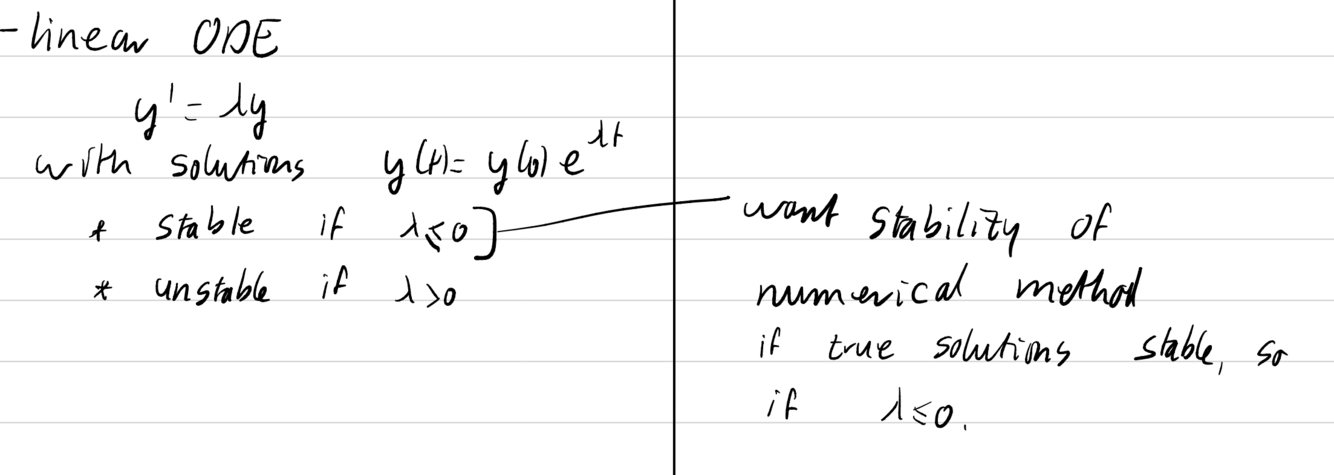 - linear ODE
y' = λy
with solutions y(t) = y(0) e^{λt}
* stable if λ ≤ 0]
* unstable if λ > 0
want stability of
numerical method
if true solutions stable, so
if λ ≤ 0.